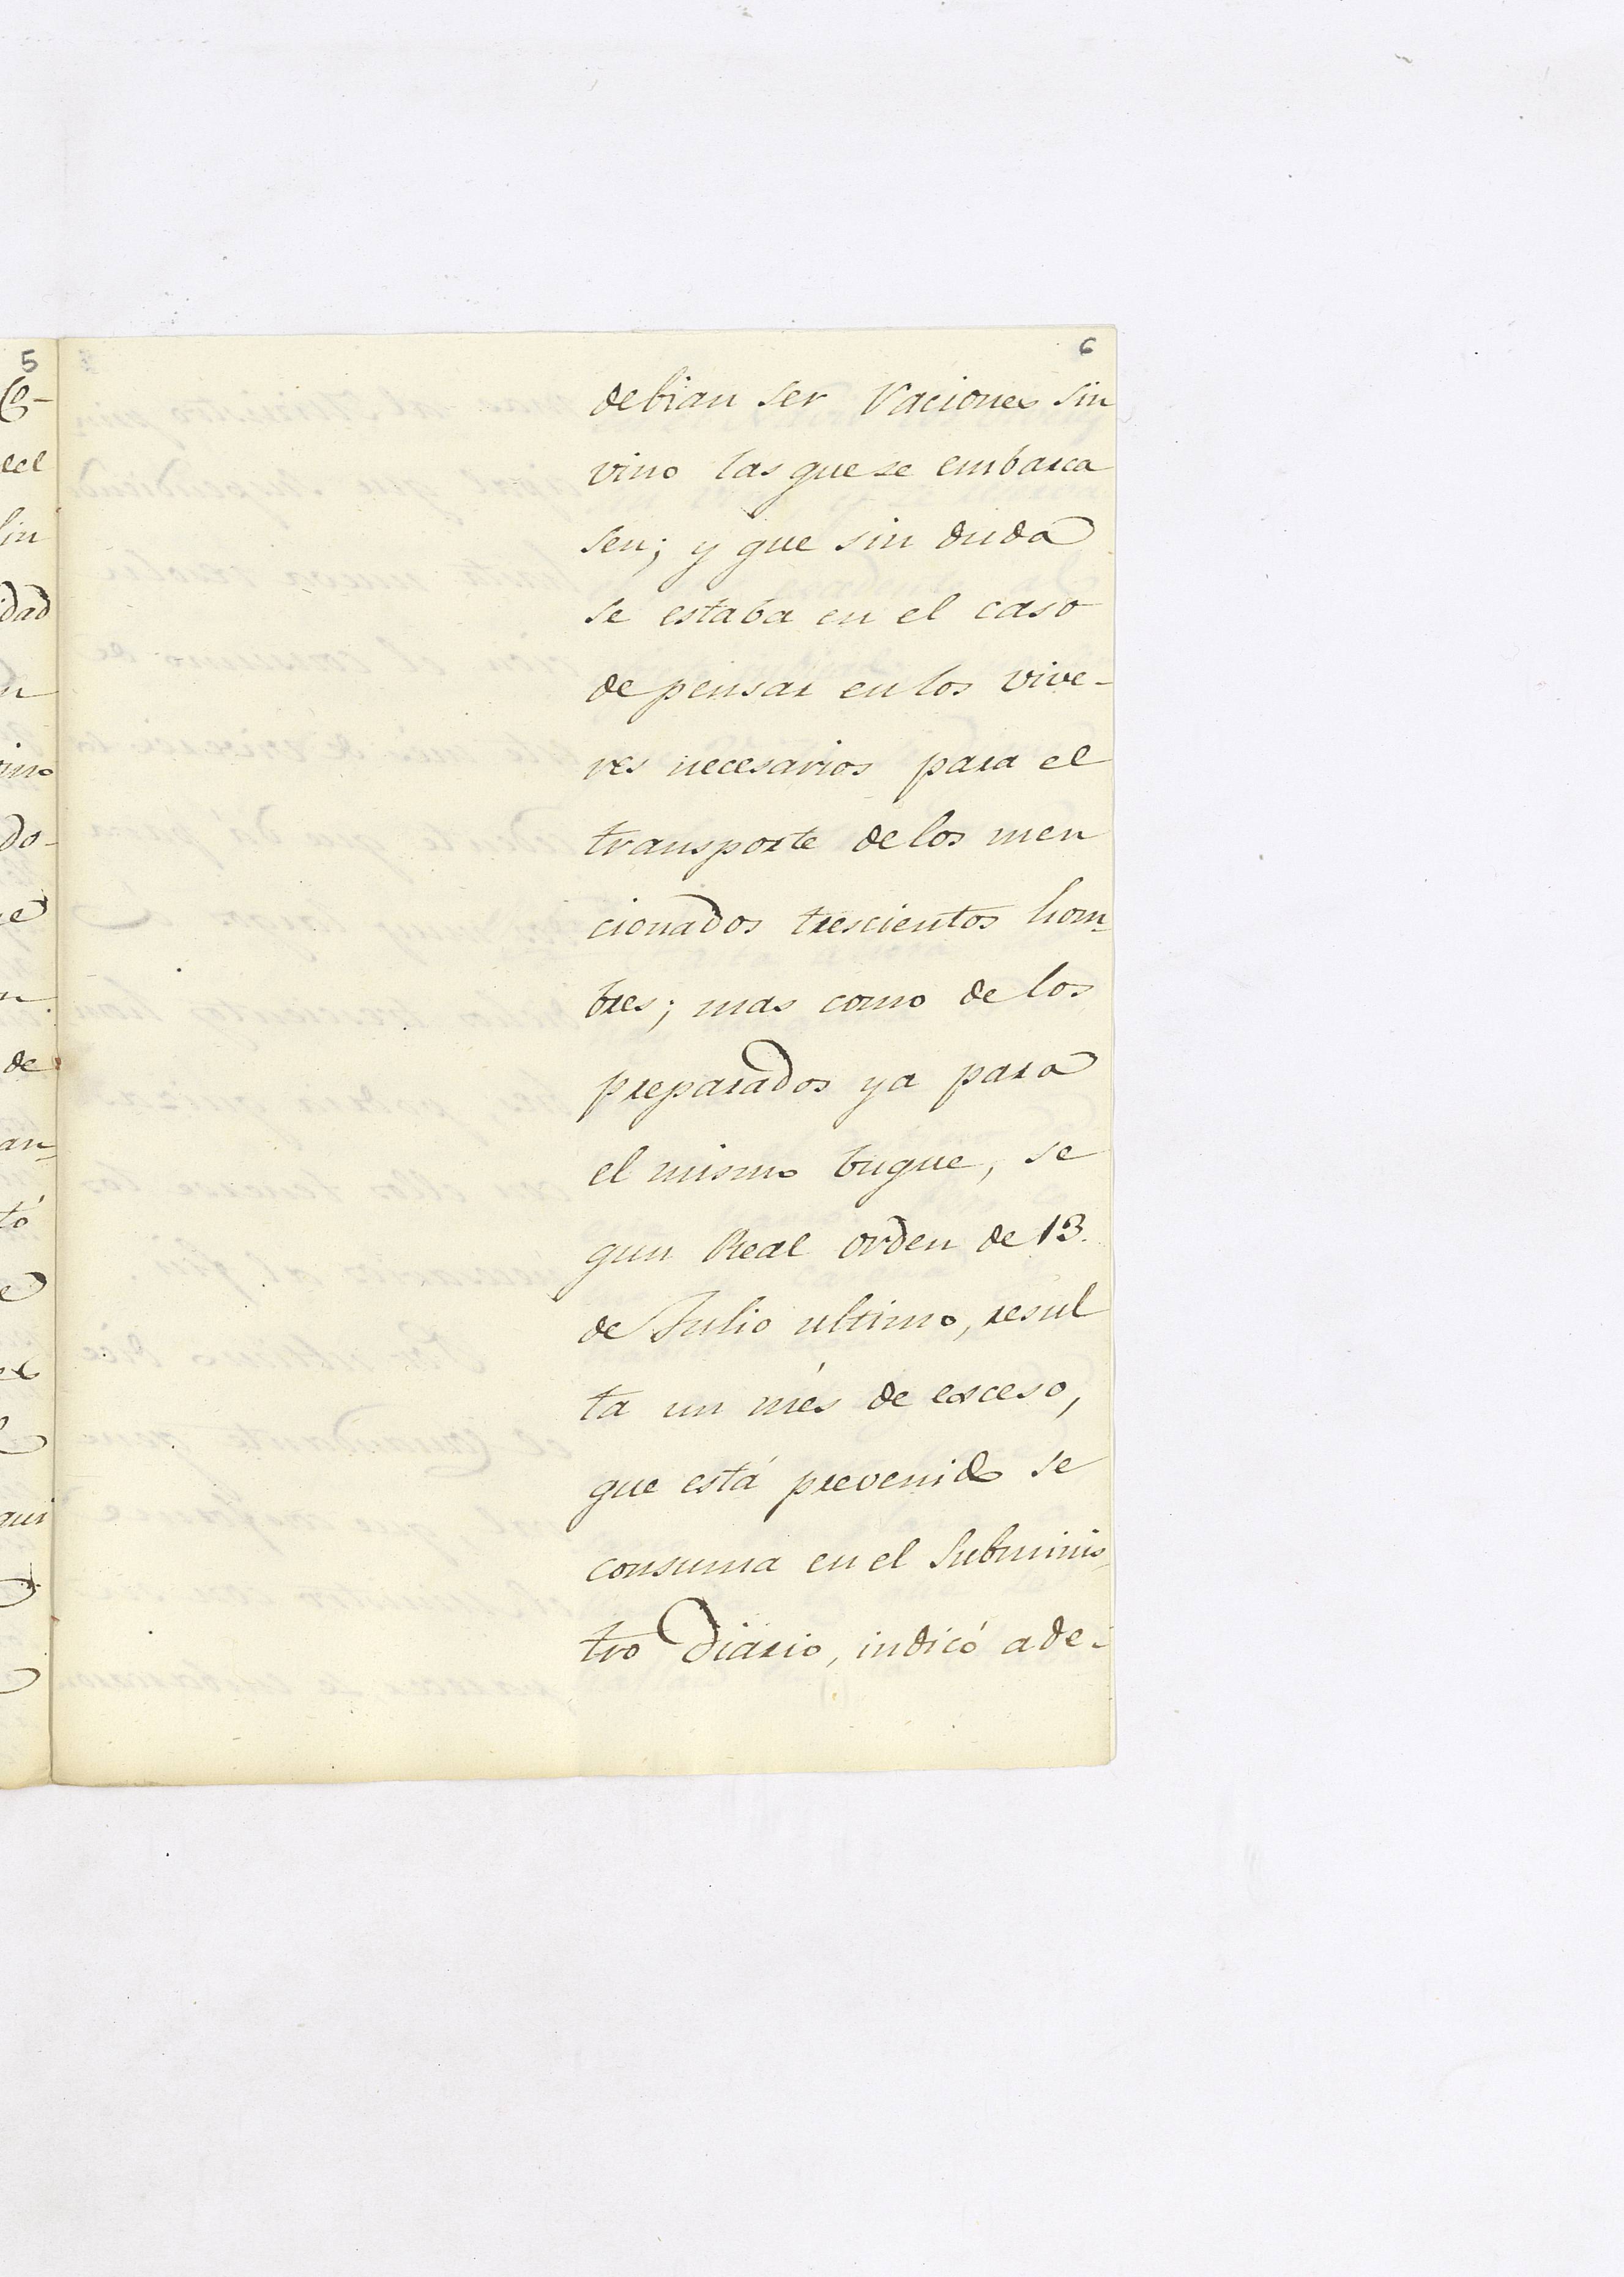 6
debian ser raciones sin
vino las que se embarca
sen; y que sin duda
se estaba en el caso
de pensar en los vive-
res necesarios para el
transporte de los men
cionados trescientos hom-
bres; mas como de los
preparados ya para
el mismo buque, se
gun Real orden de 13.
de Julio ultimo, resul
ta un més de exceso,
que está prevenido se
consuma en el Subminis-
tro diario, indicó ade-
5
lin
idad
do-
de
an-
tó